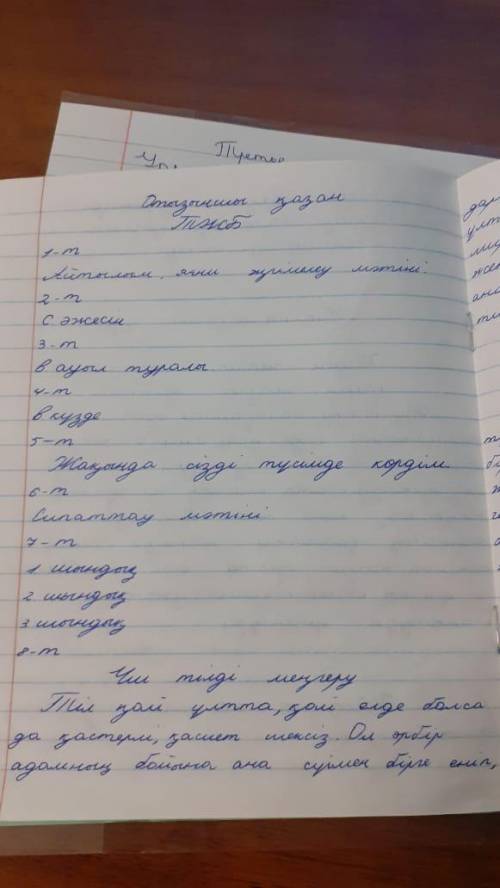 Третье
Отызыншы қазан
ТЖБ
1-т
Айтылым, яғни әңгімелеу мәтіні.
2-т
С әжесін
3-т
в ауыл туралы
4-т
в күзде
5-т
Жақында сізді түсімде көрдім
6-т
Сипаттау мәтіні
7-т
1 шындық
2 шындық
3 шындық
8-т
Үш тілді меңгеру
Тіл қай ұлтта, қай елде болса
да қастерлі, қасиет шексіз. Ол әрбір
адамның бойына ана сүтімен бірге еніп,
дар
ұлт